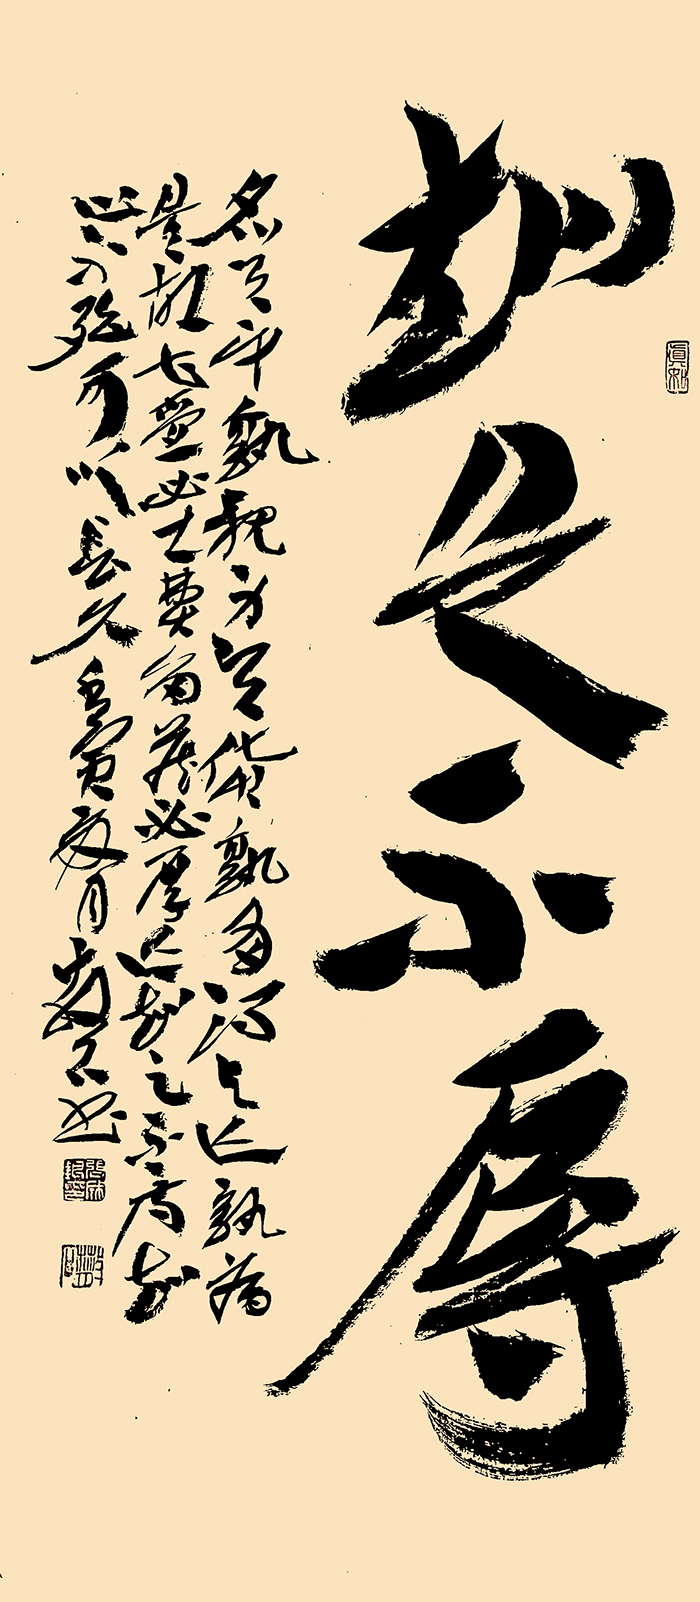 知足不辱
名与身孰親身与貨孰多得与亡孰病
是故甚愛必大費多藏必厚亡知足不辱知
止不殆可以長久壬寅夏月石書